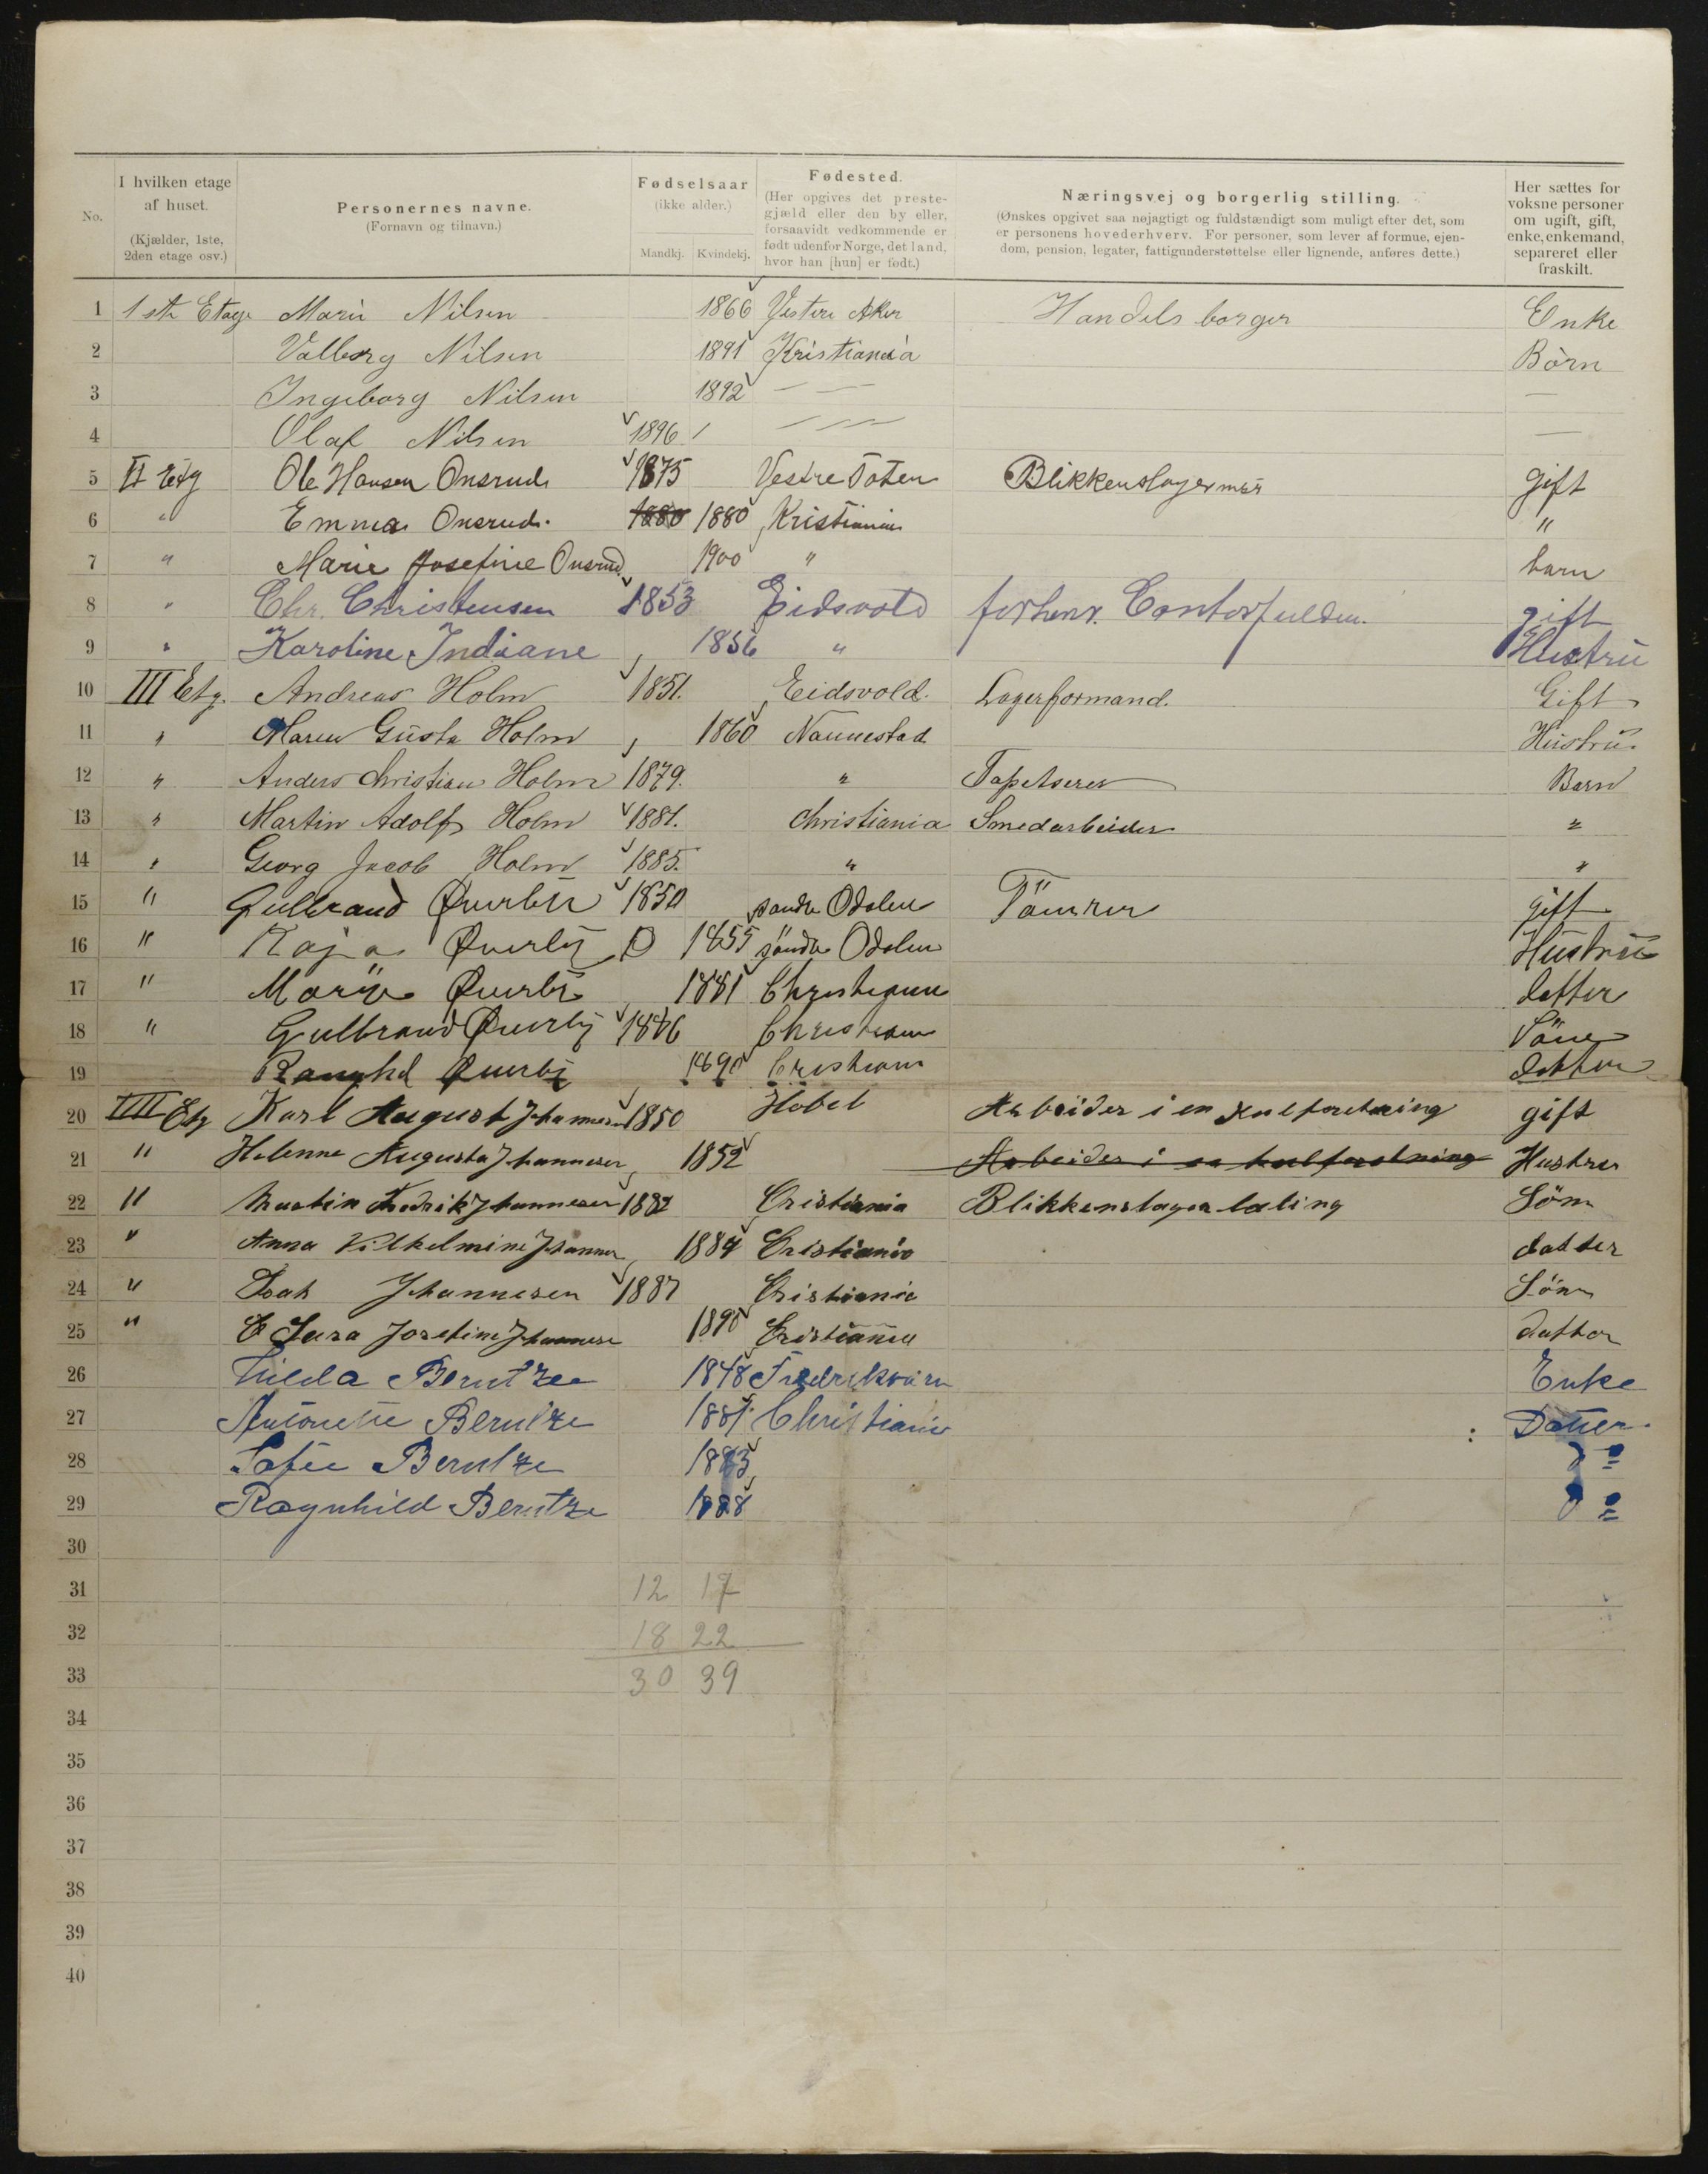 No. I hvilken etage af huset. (Kjælder, 1ste, 2den etage osv.) Personernes navne. (Fornavn og tilnavn.) Fødselsaar (ikke alder.) Mandkj. Kvindekj. Fødested. (Her opgives det prestegjæld eller den by eller, forsaavidt vedkommende er født udenfor Norge, det land, hvor han [hun] er født.) Næringsvej og borgerlig stilling. (Ønskes opgivet saa nøjagtigt og fuldstændigt som muligt efter det, som er personens hovederhverv. For personer, som lever af formue, ejendom, pension, legater, fattigunderstøttelse eller lignende, anføres dette.) Her sættes for voksne personer om ugift, gift, enke, enkemand, separeret eller fraskilt.
1 1ste Etage Marie Nilsen 1866 Vestre Aker Handels borger Enke
2 Valborg Nilsen 1891 Kristiania Börn
3 Ingeborg Nilsen 1892 — —
4 Olaf Nilsen 1896 — —
5 II Etg Ole Hansen Onsrud 1875 Vestre Toten Blikkenslager gift
6 " Emma Onsrud. 1880 1880 Kristiania "
7 " Marie Josefine Onsrud 1900 " barn
8 " Chr. Christensen 1853 Eidsvold forhenv. Contorfuldm. gift
9 " Karoline Indiane 1856 " Hustru
10 III Etg. Andreas Holm 1851. Eidsvold. Lagerformand. Gift
11 " Maren Gusta Holm 1860 Nannestad Hustru.
12 " Anders Christian Holm 1879. " Tapetserer Barn
13 " Martin Adolf Holm 1881. Christiania Smedarbeider "
14 " Georg Jacob Holm 1885. " "
15 " Gulbrand Øverby 1850 søndre Odalen Tömrer gift
16 " Kaja Øverby 1855 søndre Odalen Hustru
17 " Marie Øverby 1881 Christiania datter
18 " Gulbrand Øverby 1886 Christiania Sön
19 Ranghil Øverby 1890 Cristiania datter
20 IIII Etg Karl August Johannesen 1850 Hobel Arbeider i en kulforetning gift
21 " Helenne Augusta Johannesen 1852 Arbeider i en kulforetning Hustru
22 " Martin Fredrik Johannesen 1882 Cristiania Blikkenslager læling Sön
23 " Anna Vilhelmine Johannes 1884 Cristiania datter
24 " Isak Johannesen 1887 Cristiania Sön
25 " Clara Josefine Johannese 1890 Cristiania datter
26 Hilda Berntzen 1848 Fredriksværn Enke
27 Antonette Berntze 1881. Christiania Datter.
28 Sofie Berntze 1883 do
29 Ragnhild Berntze 1888 do
30
31 12 17
32 18 22
33 30 39
34
35
36
37
38
39
40